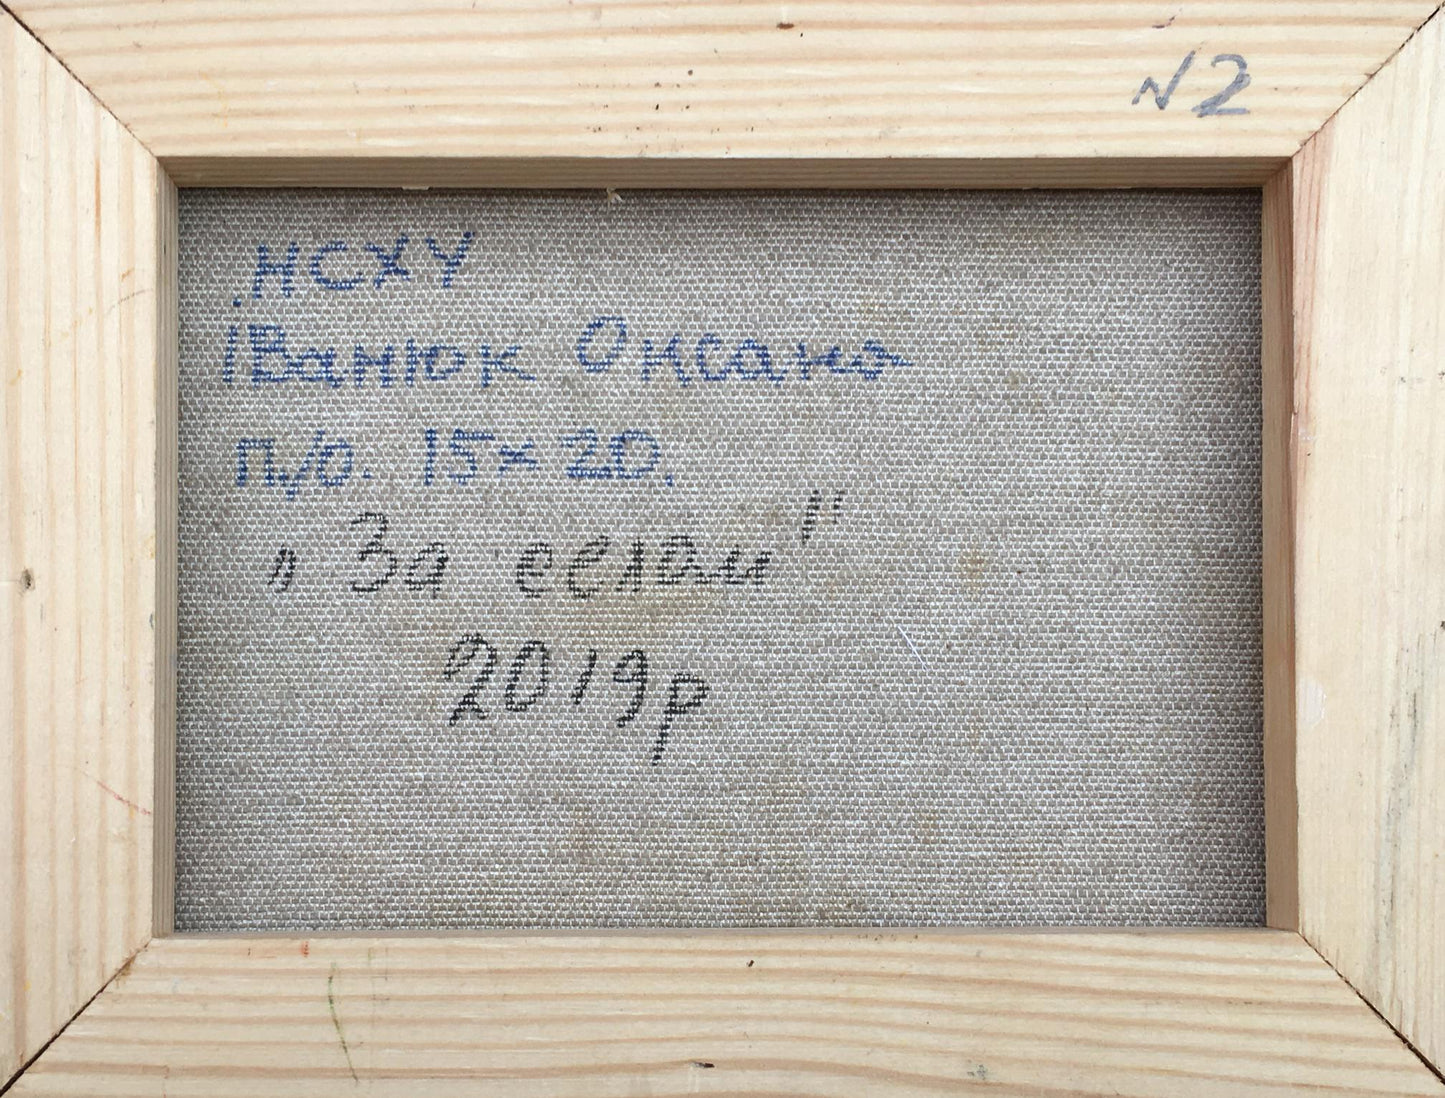 N2
.НСХУ
Іванюк Оксана
п/о. 15х20.
„За селом"
2019р